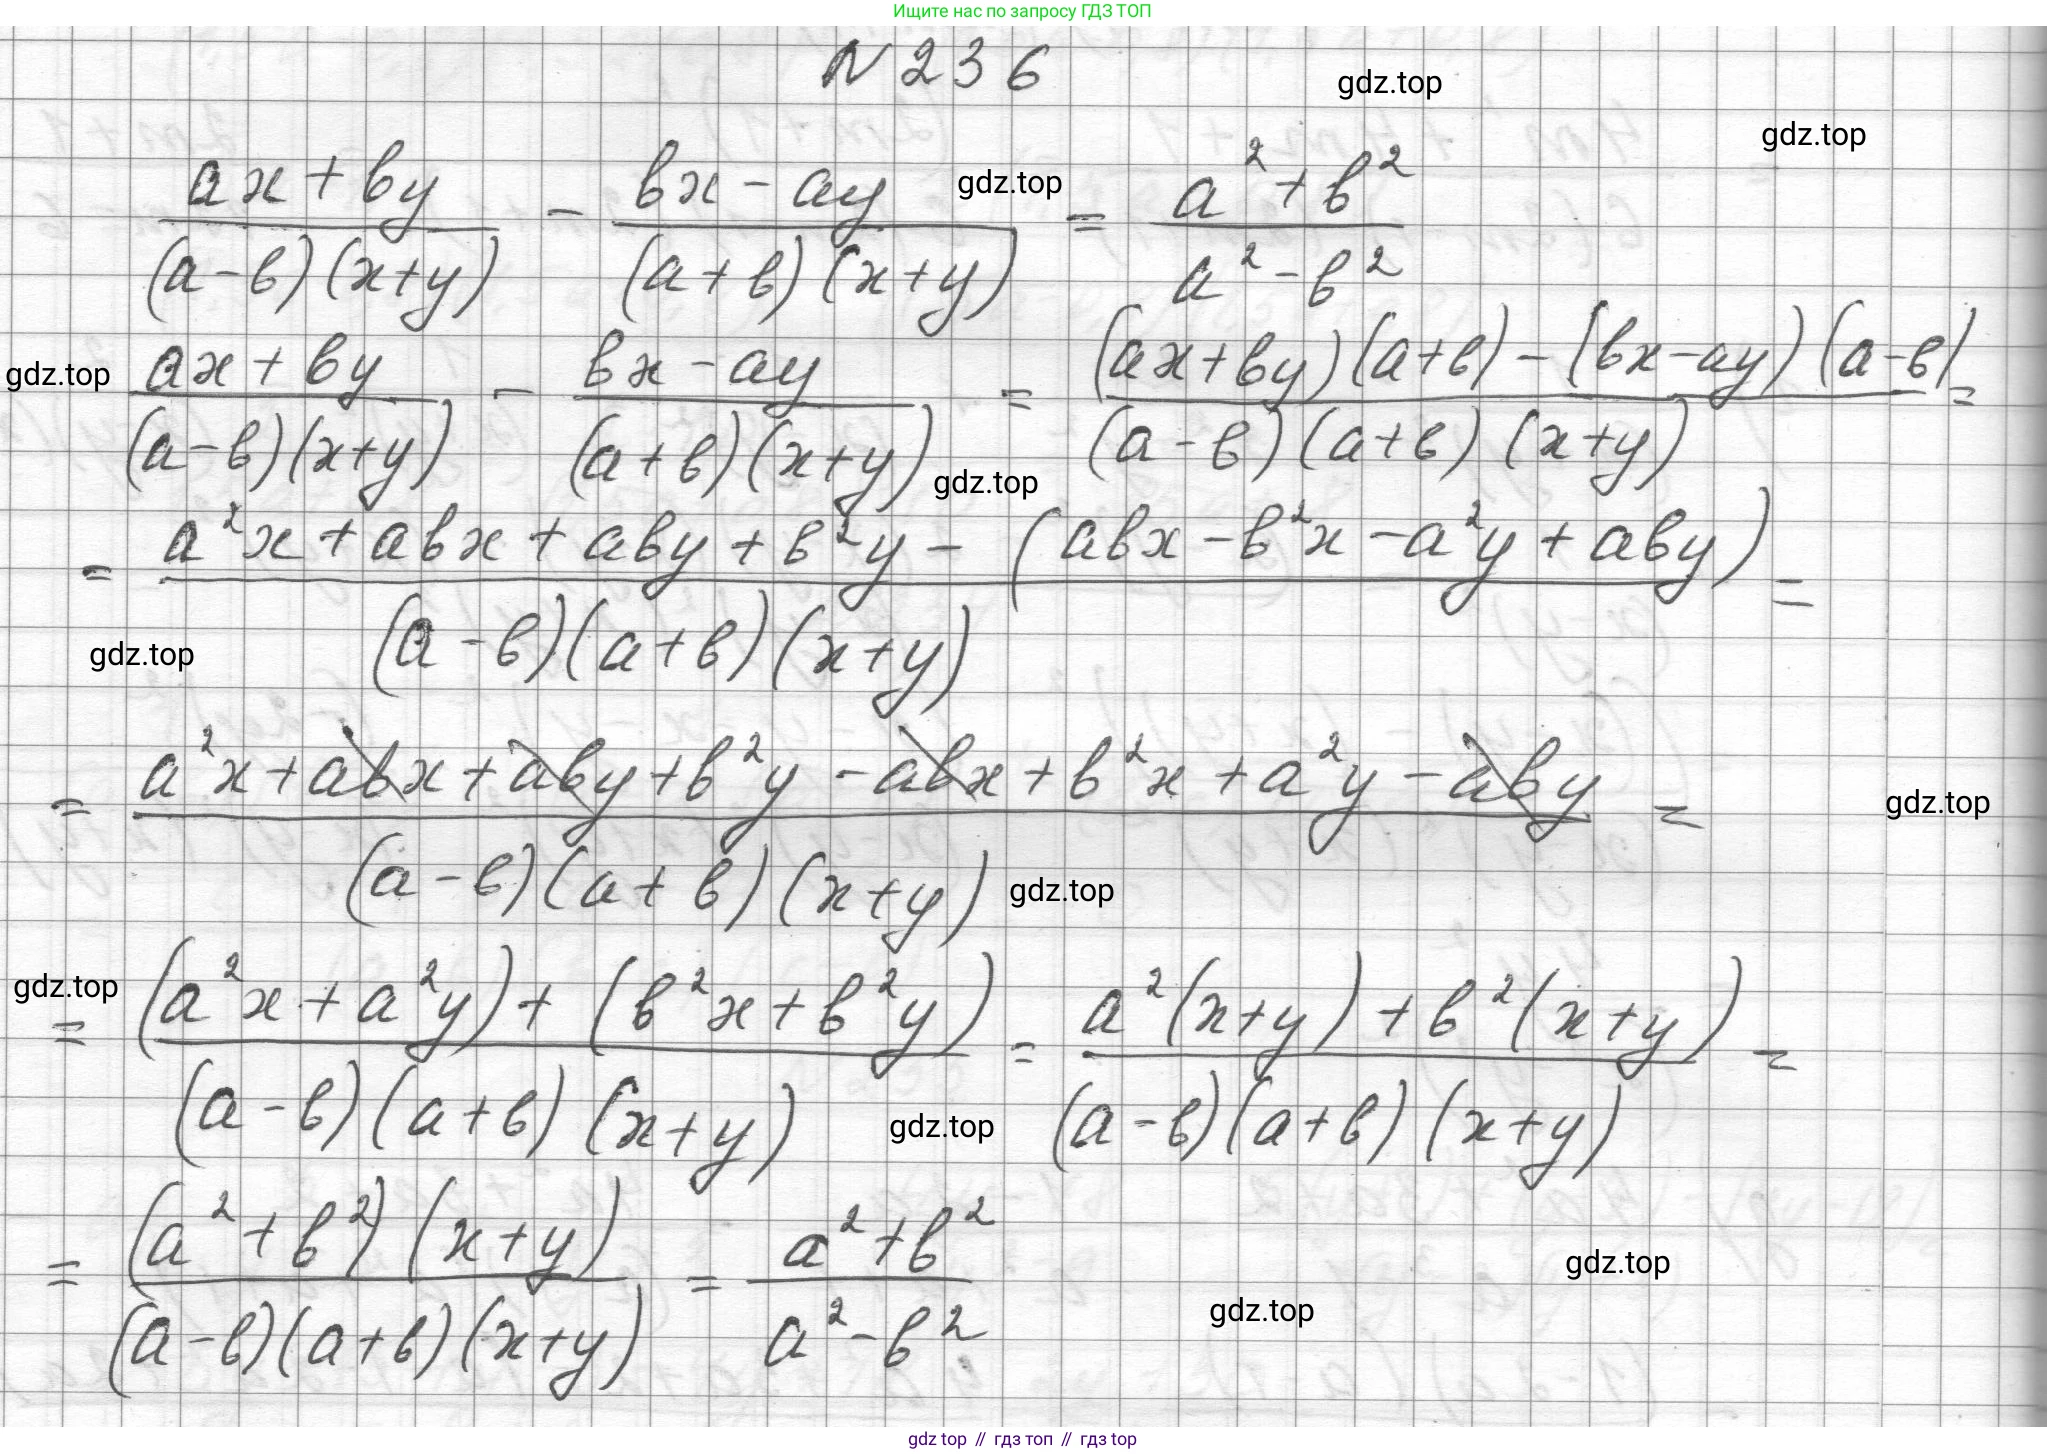 Ищите нас по запросу ГДЗ ТОП
N 236
gdz.top
gdz.top
(ax + by)/((a - b)(x + y)) - (bx - ay)/((a + b)(x + y)) = (a² + b²)/(a² - b²)
gdz.top
(ax + by)/((a - b)(x + y)) - (bx - ay)/((a + b)(x + y)) = ((ax + by)(a + b) - (bx - ay)(a - b))/((a - b)(a + b)(x + y)) =
gdz.top
gdz.top
= (a²x + abx + aby + b²y - (abx - b²x - a²y + aby))/((a - b)(a + b)(x + y)) =
gdz.top
= (a²x + abx + aby + b²y - abx + b²x + a²y - aby)/((a - b)(a + b)(x + y)) =
gdz.top
gdz.top
= ((a²x + a²y) + (b²x + b²y))/((a - b)(a + b)(x + y)) = (a²(x + y) + b²(x + y))/((a - b)(a + b)(x + y)) =
gdz.top
gdz.top
= ((a² + b²)(x + y))/((a - b)(a + b)(x + y)) = (a² + b²)/(a² - b²)
gdz.top
gdz.top
gdz top // гдз топ // гдз top